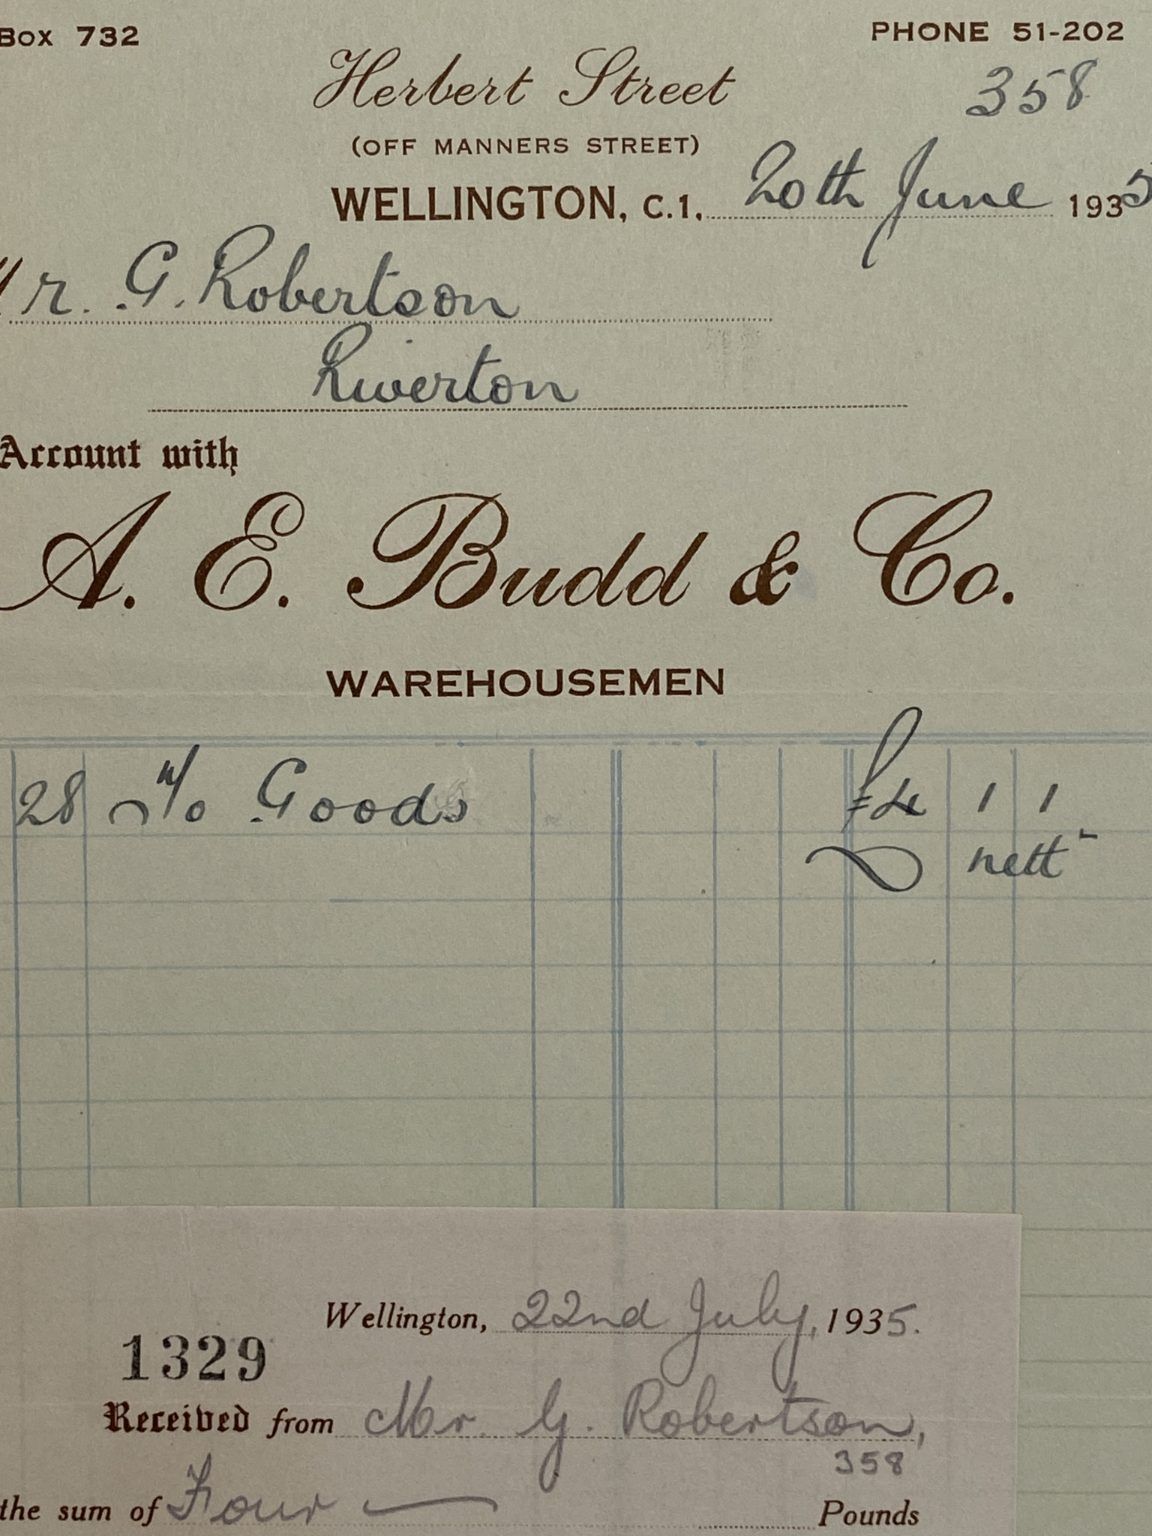 Box 732
PHONE 51-202
Herbert Street
358
(OFF MANNERS STREET)
WELLINGTON, C.1, 20th June 1935
Mr. G. Robertson
Riverton
Account with
A. E. Budd & Co.
WAREHOUSEMEN
28 Goods £4 1 1
nett
Wellington, 22nd July, 1935.
1329
Received from Mr. G. Robertson,
358
the sum of Four Pounds